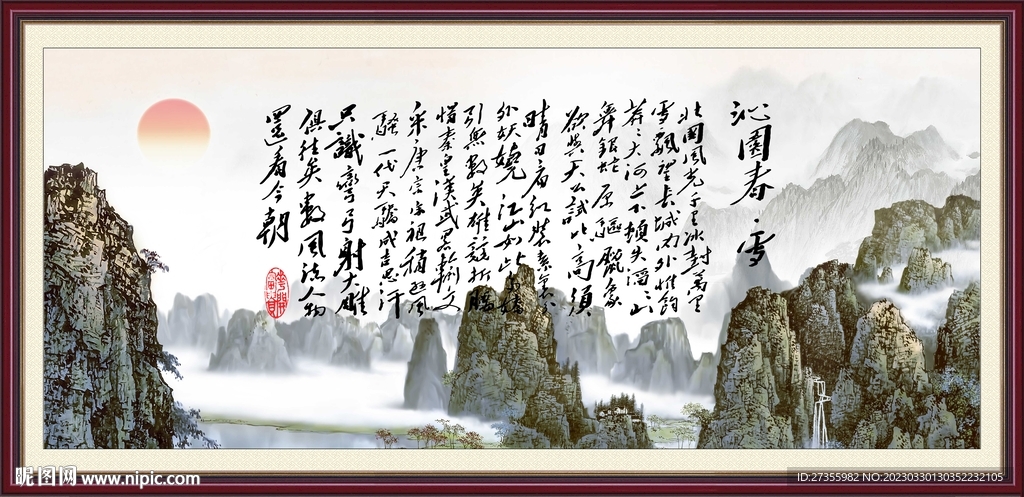 沁園春·雪
北國風光千里冰封萬里
雪飄望長城内外惟餘
莽莽大河上下頓失滔滔山
舞銀蛇原驅臘象
欲與天公試比高須
晴日看紅裝素裹分
外妖嬈江山如此多嬌
引無數英雄競折腰
惜秦皇漢武略輸文
采唐宗宋祖稍遜風
騷一代天驕成吉思汗
只識彎弓射大雕
俱往矣數風流人物
還看今朝
昵图网 www.nipic.com
ID:27355982 NO:20230330130352232105